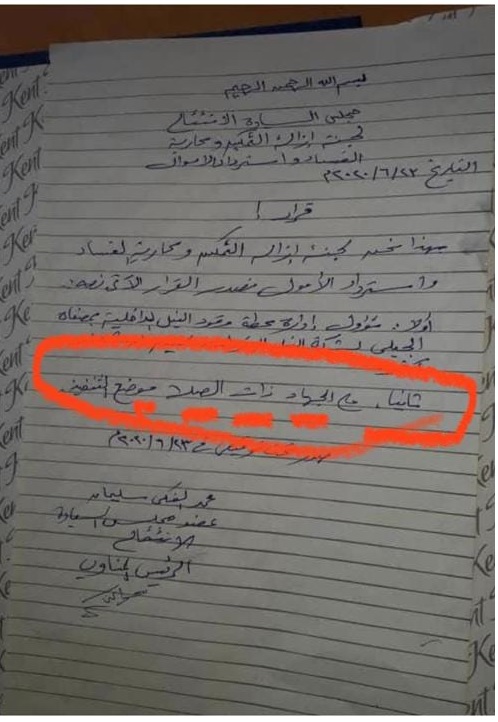 بسم الله الرحمن الرحيم
مجلس السيادة الانتقالي
لجنة إزالة التمكين ومحاربة
الفساد واسترداد الأموال
التاريخ ٢٠٢٠/٦/٢٣م
قرار !
بهذا نحن لجنة إزالة التمكين ومحاربة الفساد
واسترداد الأموال نصدر القرار الآتي نصه:
أولاً: تؤول إدارة محطة وقود النيل الداخلية بمصفاة
الجيلي لشركة النيل
ثانياً: على الجهات ذات الصلة موضع التنفيذ
٢٠٢٠/٦/٢٣م
محمد الفكي سليمان
عضو مجلس السيادة
الانتقالي
الرئيس المناوب
Kent